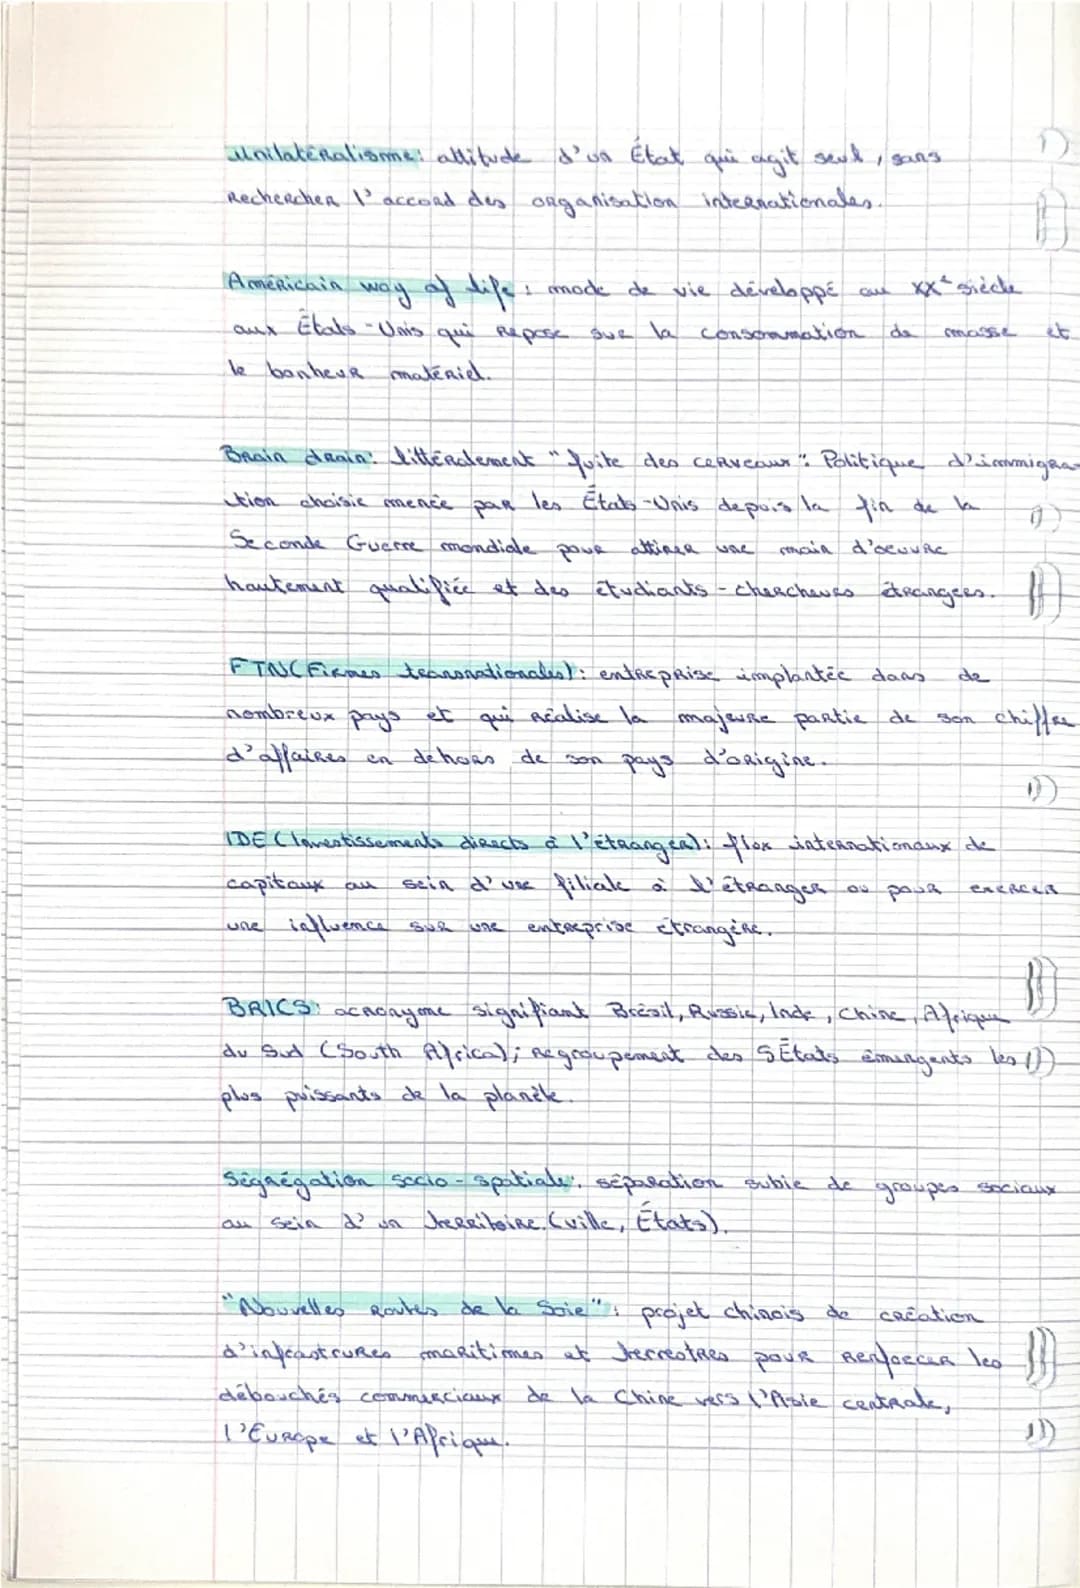 Unilatéralisme: attitude d'un État qui agit seul, sans
Rechercher l'accord des organisation internationales.
Américain way of life: mode de vie développé au XXe siècle
aux États-Unis qui Repose sur la consommation de masse et
le bonheur matériel.
Brain drain: littéralement "fuite des cerveaux": Politique d'immigra-
tion choisie menée par les États-Unis depuis la fin de la
Seconde Guerre mondiale pour attirer une main d'oeuvre
hautement qualifiée et des étudiants-chercheurs étrangers.
FTN (Firmes transnationales): entreprise implantée dans de
nombreux pays et qui réalise la majeure partie de son chiffre
d'affaires en dehors de son pays d'origine.
IDE (Investissements directs à l'étranger): flux internationaux de
capitaux au sein d'une filiale à l'étranger ou pour exercer
une influence sur une entreprise étrangère.
BRICS: acronyme signifiant Brésil, Russie, Inde, Chine, Afrique
du Sud (South Africa); Regroupement des 5 États émergents les
plus puissants de la planète.
Ségrégation socio-spatiale: séparation subie de groupes sociaux
au sein d'un territoire. (ville, États).
"Nouvelles Routes de la Soie": projet chinois de création
d'infrastrures maritimes et terrestres pour Renforcer les
débouchés commerciaux de la Chine vers l'Asie centrale,
l'Europe et l'Afrique.